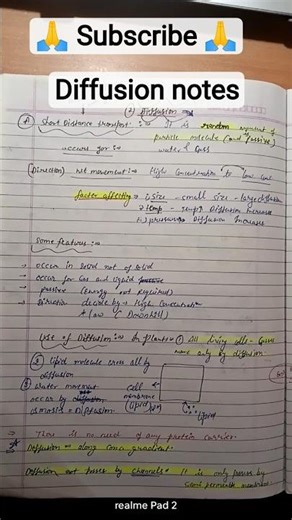 🙏 Subscribe 🙏
Diffusion notes
① Diffusion
Ⓐ Short Distance transport :- It is random movement of
particle molecule (and passive)
occurs for :- water & Gas
(Direction) Net movement :- High Concentration to low Conc
factor affecting → ① size - small size - large diffusion
② temp - temp↑ Diffusion Increase
③ pressure↑ Diffusion Increase
Some features :-
→ occur in not of Solid
→ occur for Gas and liquid
→ passive (energy not required)
→ Direction decide by → High Concentration
(law of Downhill)
use of Diffusion :- In Plants → ① All living cells - Gases
move only by diffusion
② Lipid molecule cross all by
diffusion
③ Water movement
occur by
osmosis = Diffusion
Cell
membrane
(Lipid)
Lipid
→ There is no need of any protein carrier.
Diffusion → along conc. gradient.
Diffusion not passes by channels. It is only passes by
semi permeable membrane.
realme Pad 2